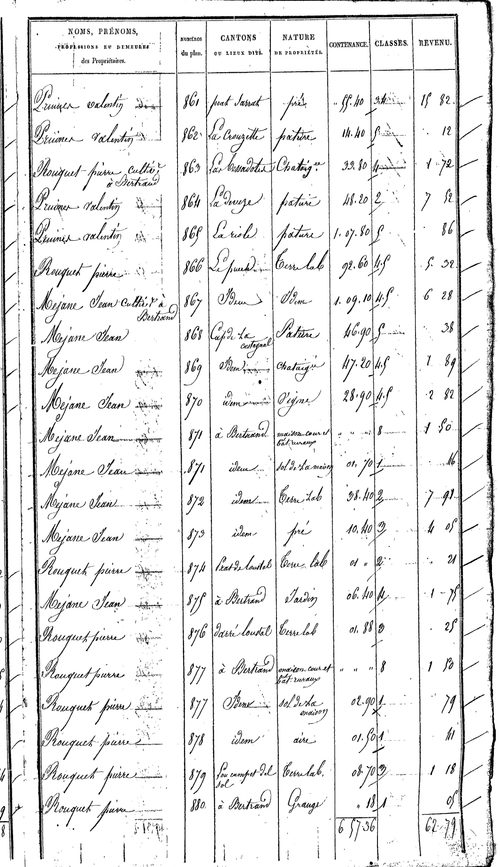 NOMS, PRÉNOMS, PROFESSIONS ET DEMEURES des Propriétaires. | NUMÉROS du plan. | CANTONS OU LIEUX DITS. | NATURE DE PROPRIÉTÉS. | CONTENANCE. | CLASSES. | REVENU.
Prunier Valentin 861 prat Sarrat pré " 55.40 3.4 15 82
Prunier Valentin 862 La Crouzette pature 14.40 5 " 12
Rouquet pierre cultiv.r à Bertrand 863 Chataig.re 33.80 4 1 72
Prunier Valentin 864 pature 48.20 2 7 52
Prunier Valentin 865 La riole pature 1.07.80 5 86
Rouquet pierre 866 Le puech Terre lab 92.60 4.5 5 32
Mejane Jean cultiv.r à Bertrand 867 Idem Idem 1.09.10 4.5 6 28
Mejane Jean 868 Cap de La Pature 46.90 5 38
Mejane Jean 869 Idem chataig.re 47.20 4.5 1 89
Mejane Jean 870 idem Vigne 28.90 4.5 2 82
Mejane Jean 871 à Bertrand maison cour et bât. ruraux " " " 8 1 50
Mejane Jean 871 idem sol de la maison 01.70 1 46
Mejane Jean 872 idem Terre Lab 38.40 2 7 98
Mejane Jean 873 idem pré 10.40 3 4 05
Rouquet pierre 874 Terre lab 01 " 2 21
Mejane Jean 875 à Bertrand Jardin 06.40 4 1 75
Rouquet pierre 876 darré loustal Terre lab 01.88 3 25
Rouquet pierre 877 à Bertrand maison cour et bât. ruraux " " " 8 1 50
Rouquet pierre 877 Idem sol de La maison 02.90 1 79
Rouquet pierre 878 idem aire 01.50 1 41
Rouquet pierre 879 Lou campet del sol Terre lab. 08.70 3 1 18
Rouquet pierre 880 à Bertrand Grange " 18 1 05
6 57 36 62 79